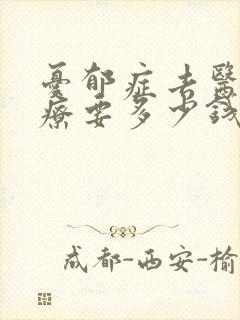 憂郁症去醫
療要多少錢
成都-西安-榆